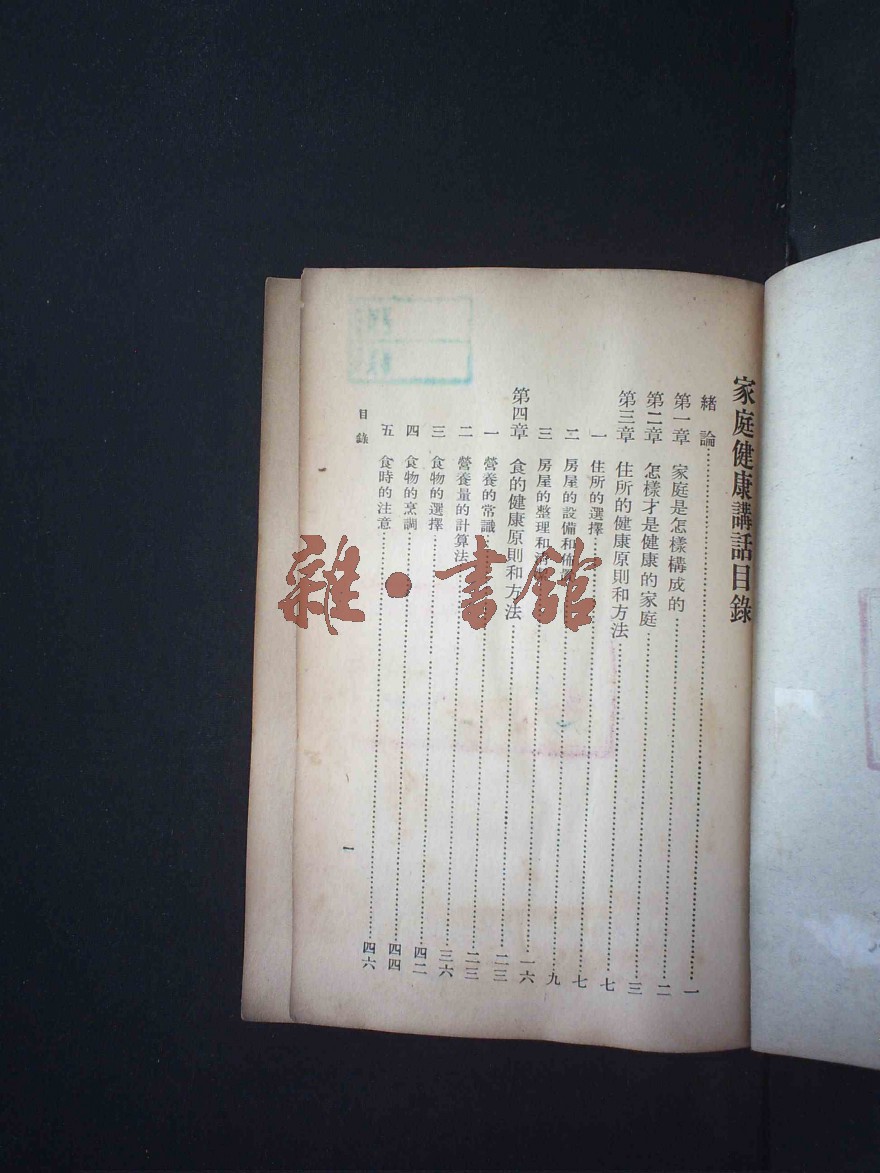 家庭健康講話目錄
緒論……一
第一章 家庭是怎樣構成的……二
第二章 怎樣才是健康的家庭……三
第三章 住所的健康原則和方法……七
一 住所的選擇……七
二 房屋的設備和佈置……九
三 房屋的整理和清……一六
第四章 食的健康原則和方法……二三
一 營養的常識……二三
二 營養量的計算法……三六
三 食物的選擇……四二
四 食物的烹調……四四
五 食時的注意……四六
目錄
一
雜·書館